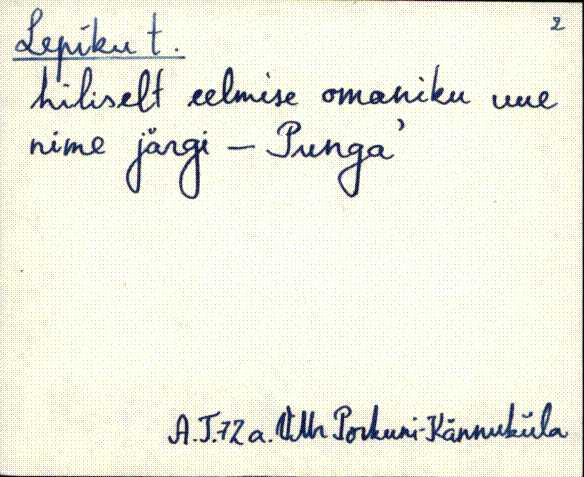 2
Lepiku t.
hiliselt eelmise omaniku uue
nime järgi – Punga'
A.T. 72 a. VMr Porkuni-Kännuküla